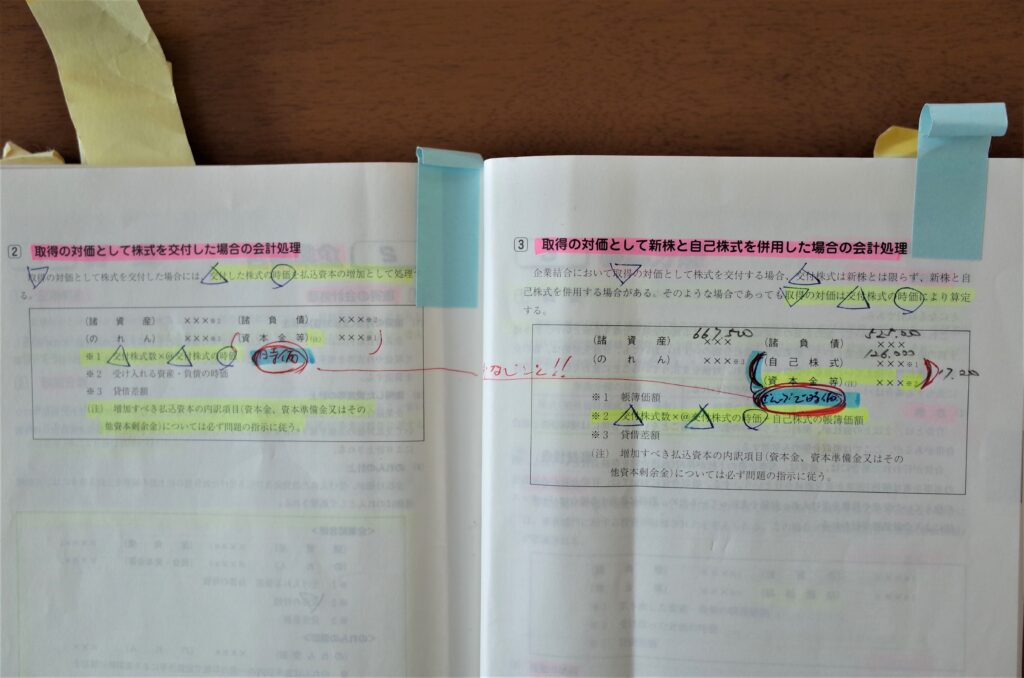 2 取得の対価として株式を交付した場合の会計処理
取得の対価として株式を交付した場合には、交付した株式の時価を払込資本の増加として処理す
る。
(諸資産) ×××※2 (諸負債) ×××※2
(のれん) ×××※3 (資本金等)(注) ×××※1
※1 交付株式数×@交付株式の時価 時価
※2 受け入れる資産・負債の時価
※3 貸借差額
(注) 増加すべき払込資本の内訳項目(資本金、資本準備金又はその
他資本剰余金)については必ず問題の指示に従う。
同じこと!!
3 取得の対価として新株と自己株式を併用した場合の会計処理
企業結合において取得の対価として株式を交付する場合、交付株式は新株とは限らず、新株と自
己株式を併用する場合がある。そのような場合であっても取得の対価は交付株式の時価により算定
する。
667,500
(諸資産) ××× (諸負債) ×××
126,000
(のれん) ×××※3 (自己株式) ×××※1
(資本金等)(注) ×××※2
※1 帳簿価額
※2 交付株式数×@交付株式の時価-自己株式の帳簿価額
※3 貸借差額
(注) 増加すべき払込資本の内訳項目(資本金、資本準備金又はその
他資本剰余金)については必ず問題の指示に従う。